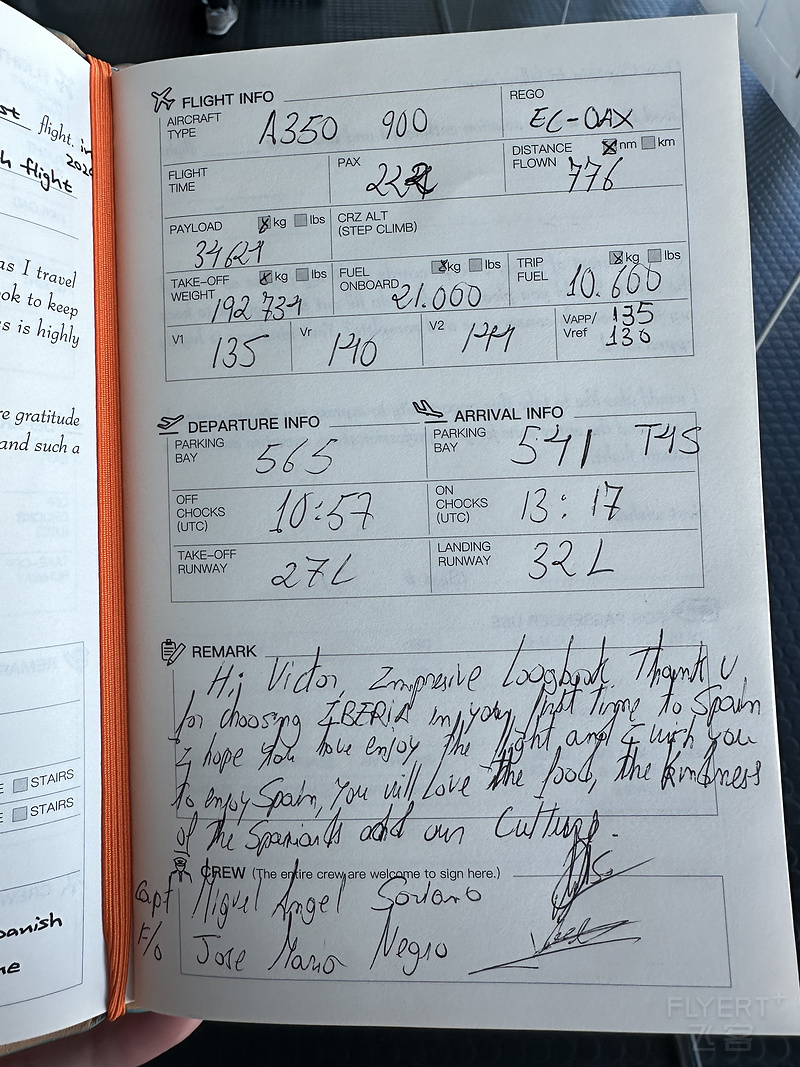 st flight. in
2024
h flight
as I travel
ok to keep
es is highly
re gratitude
and such a
E STAIRS
E STAIRS
panish
me
FLIGHT INFO
AIRCRAFT TYPE A350 900
REGO EC-OAX
FLIGHT TIME
PAX
DISTANCE FLOWN nm km 776
PAYLOAD kg lbs 34621
CRZ ALT (STEP CLIMB)
TAKE-OFF WEIGHT kg lbs 192 731
FUEL ONBOARD kg lbs 21.000
TRIP FUEL kg lbs 10.600
V1 135
Vr 140
V2 144
VAPP/ Vref 135 130
DEPARTURE INFO
ARRIVAL INFO
PARKING BAY 565
PARKING BAY 541 T4S
OFF CHOCKS (UTC) 10:57
ON CHOCKS (UTC) 13:17
TAKE-OFF RUNWAY 27L
LANDING RUNWAY 32L
REMARK
Hi Victor, Impresive Loogbook. Thank U
for choosing IBERIA in your first time to Spain
I hope you have enjoy the flight and I wish you
to enjoy Spain, you will love the food, the kindness
of the Spaniards and our Culture.
CREW (The entire crew are welcome to sign here.)
Capt Miguel Angel Soriano
F/o Jose Maria Negro
FLYERT+
飞客